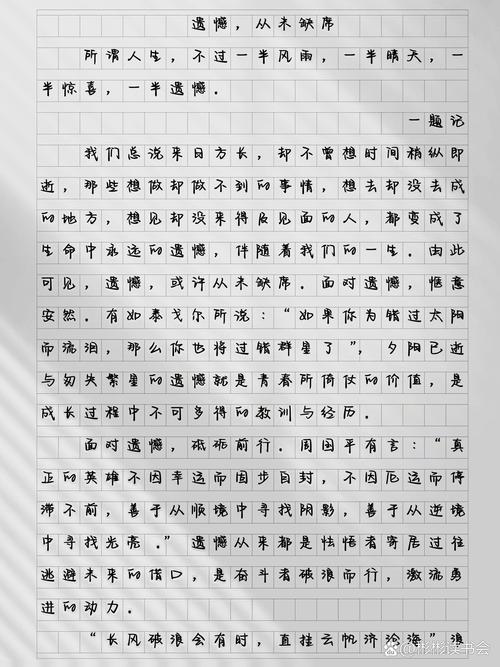 遗憾，从未缺席
所谓人生，不过一半风雨，一半晴天，一
半惊喜，一半遗憾．
一题记
我们总说来日方长，却不曾想时间稍纵即
逝，那些想做却做不到的事情，想去却没去成
的地方，想见却没来得及见面的人，都变成了
生命中永远的遗憾，伴随着我们的一生．由此
可见，遗憾，或许从未缺席．面对遗憾，惬意
安然．有如泰戈尔所说：“如果你为错过太阳
而流泪，那么你也将过错群星了”，夕阳已逝
与勿失繁星的遗憾就是青春所倚仗的价值，是
成长过程中不可多得的教训与经历．
面对遗憾，砥砺前行．周国平有言：“真
正的英雄不因幸运而固步自封，不因厄运而停
滞不前，善于从顺境中寻找阴影，善于从逆境
中寻找光亮．”遗憾从来都是怯悟者寄居过往
逃避未来的借口，是奋斗者破浪而行，激流勇
进的动力．
“长风破浪会有时，直挂云帆济沧海”浪
百家号/彬彬读书会